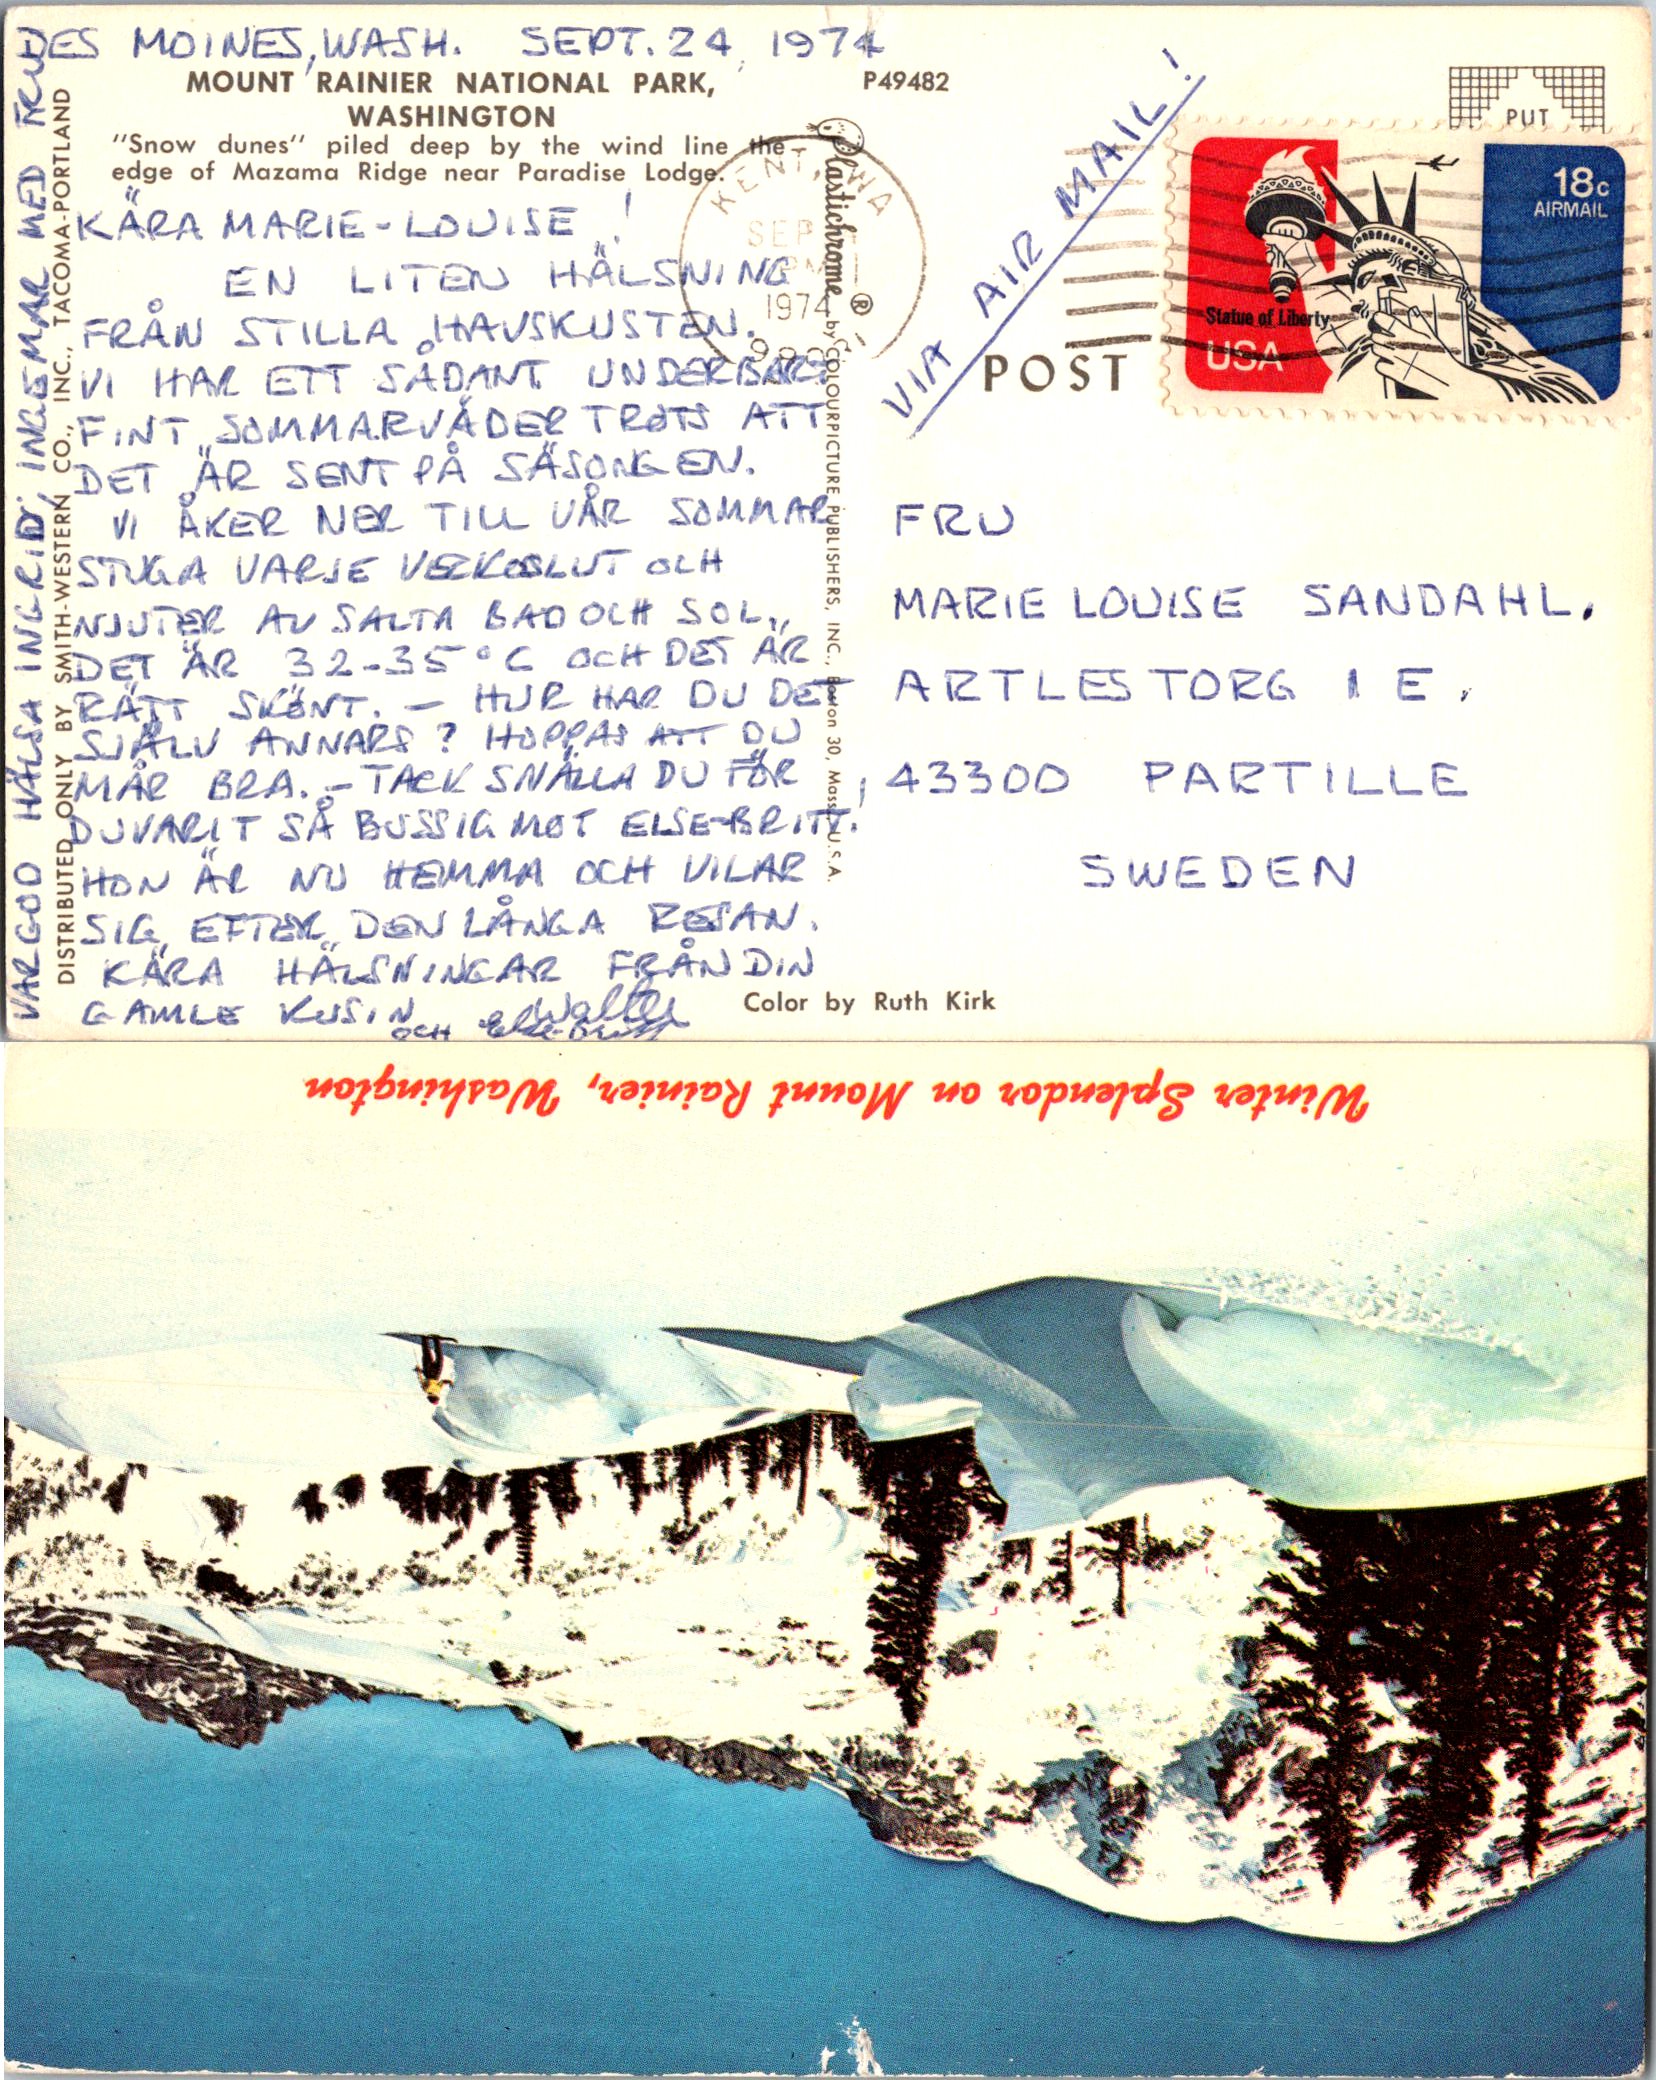 DES MOINES, WASH. SEPT. 24, 1974
MOUNT RAINIER NATIONAL PARK,
WASHINGTON
"Snow dunes" piled deep by the wind line the
edge of Mazama Ridge near Paradise Lodge.
P49482
KÄRA MARIE-LOUISE!
EN LITEN HÄLSNING
FRÅN STILLA HAVSKUSTEN.
VI HAR ETT SÅDANT UNDERBART
FINT SOMMARVÄDER TROTS ATT
DET ÄR SENT PÅ SÄSONGEN.
VI ÅKER NER TILL VÅR SOMMAR
STUGA VARJE VECKOSLUT OCH
NJUTER AV SALTA BAD OCH SOL,
DET ÄR 32-35°C OCH DET ÄR
RÄTT SKÖNT. — HUR HAR DU DET
SJÄLV ANNARS? HOPPAS ATT DU
MÅR BRA. — TACK SNÄLLA DU FÖR
DU VARIT SÅ BUSSIG MOT ELSE-BRITT!
HON ÄR NU HEMMA OCH VILAR
SIG EFTER DEN LÅNGA RESAN.
KÄRA HÄLSNINGAR FRÅN DIN
GAMLE KUSIN Walter
OCH Else-Britt
VAR GOD HÄLSA INGRID, INGEMAR MED FRU
DISTRIBUTED ONLY BY SMITH-WESTERN CO., INC., TACOMA-PORTLAND
Plastichrome ® by COLOURPICTURE PUBLISHERS, INC., Boston 30, Mass., U.S.A.
KENT, WA
SEP
PM
1974
VIA AIR MAIL!
POST
PUT
18c
AIRMAIL
Statue of Liberty
USA
FRU
MARIE LOUISE SANDAHL.
ARTLESTORG 1 E.
43300 PARTILLE
SWEDEN
Color by Ruth Kirk
Winter Splendor on Mount Rainier, Washington